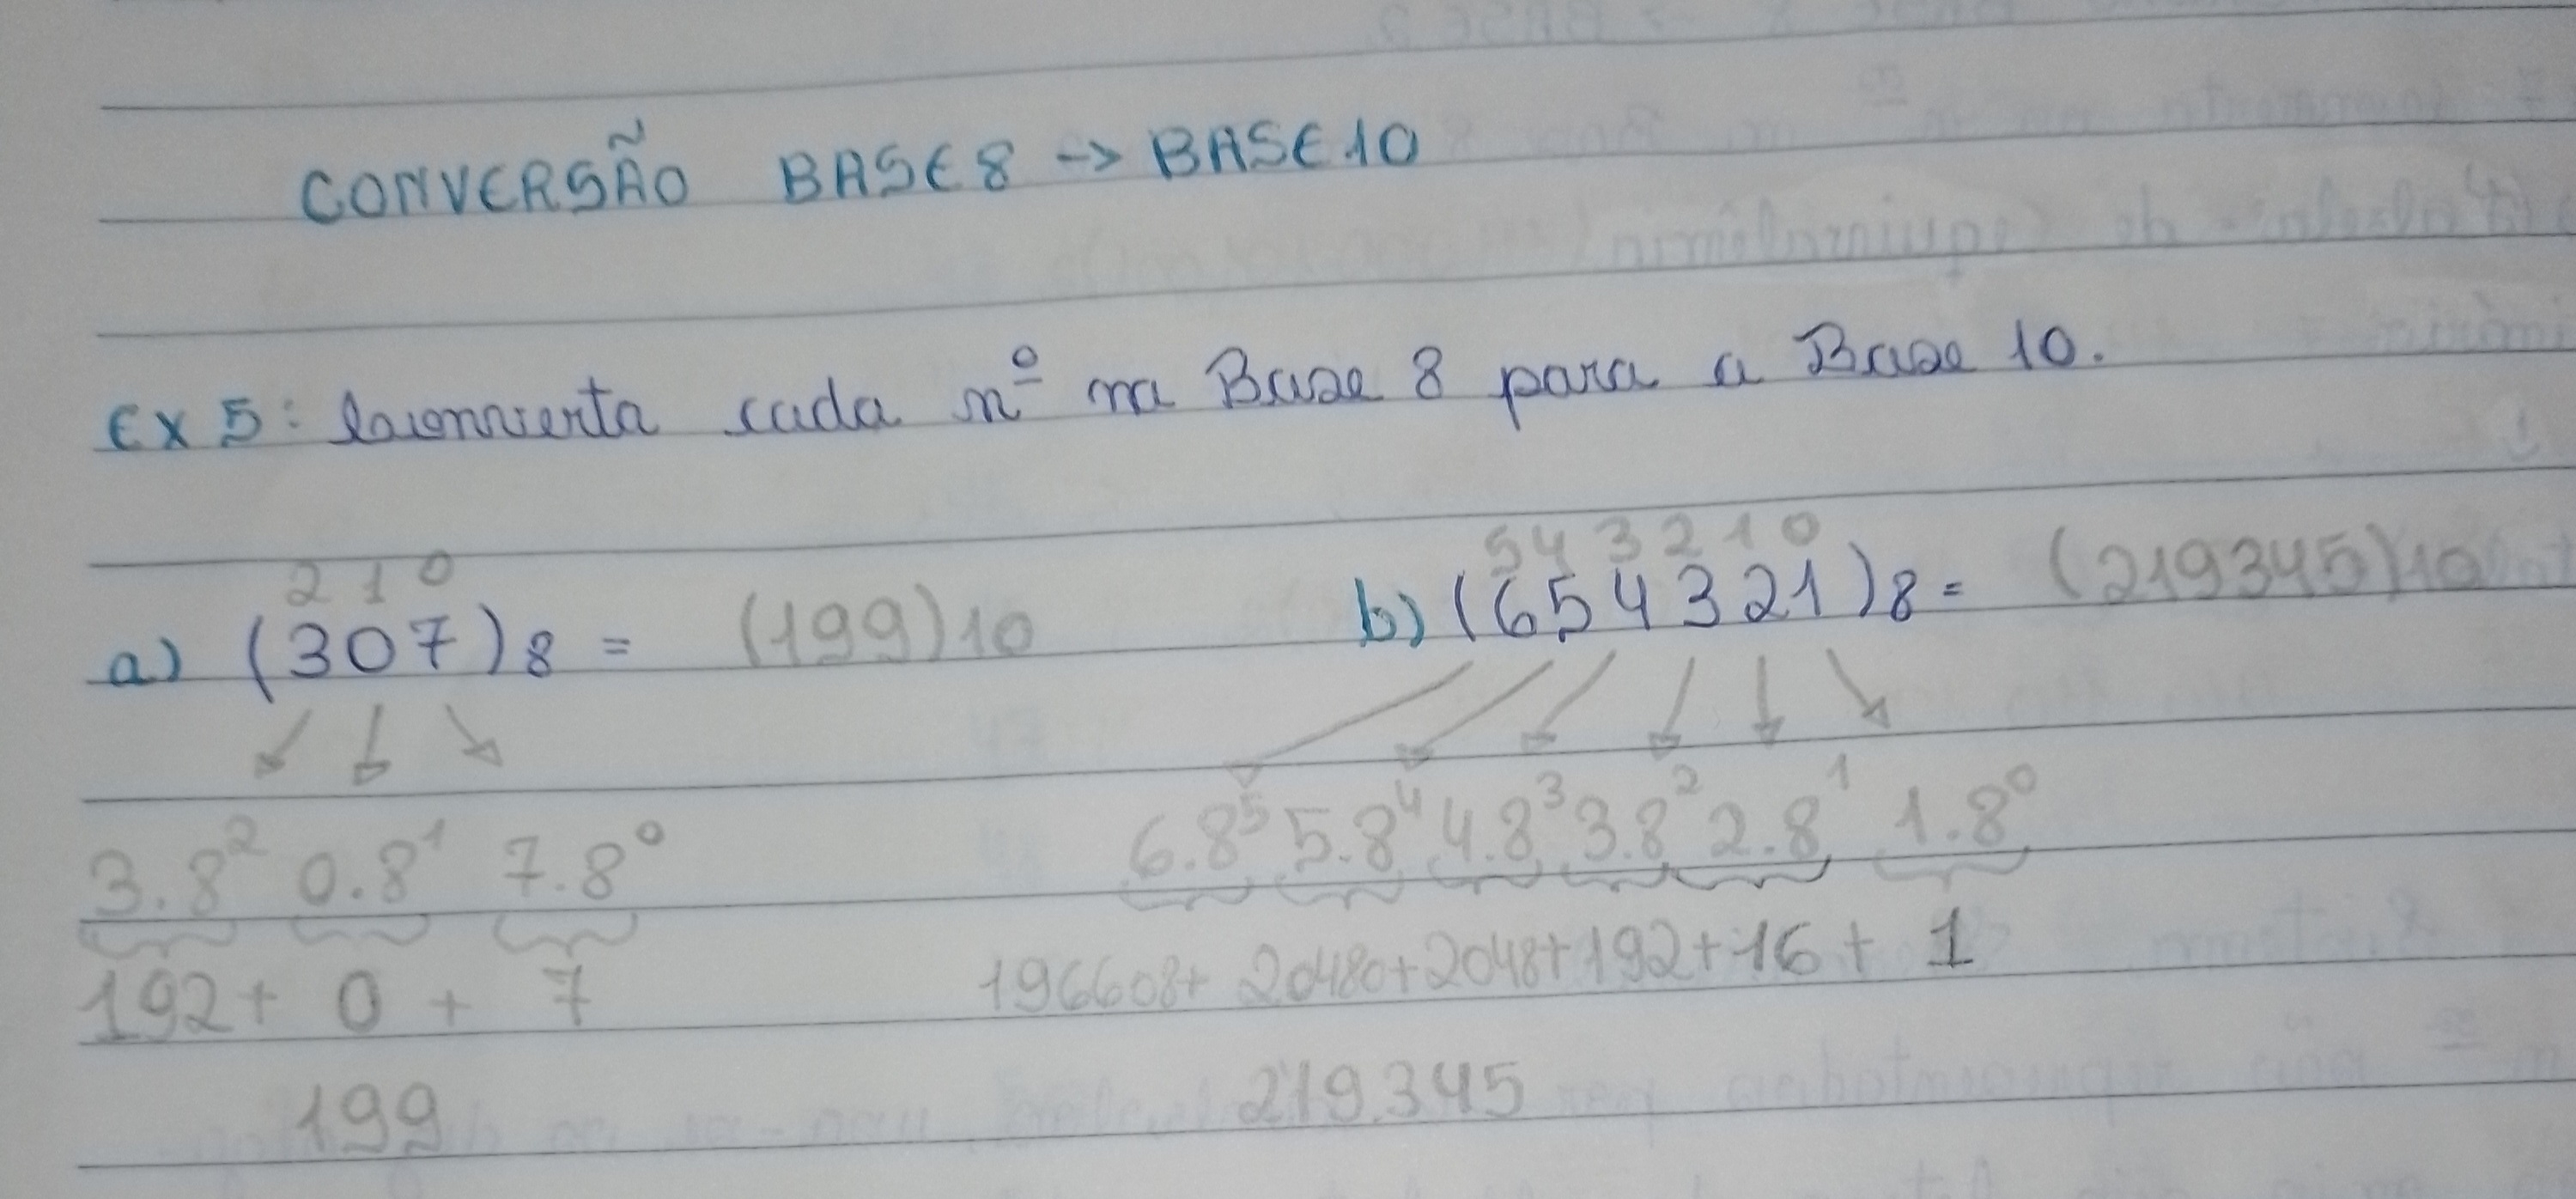 CONVERSÃO BASE 8 -> BASE 10
EX 5: Converta cada nº na Base 8 para a Base 10.
2 1 0
a) (307)8 = (199)10
3.8² 0.8¹ 7.8⁰
192 + 0 + 7
199
5 4 3 2 1 0
b) (654321)8 = (219345)10
6.8⁵ 5.8⁴ 4.8³ 3.8² 2.8¹ 1.8⁰
196608 + 20480 + 2048 + 192 + 16 + 1
219.345